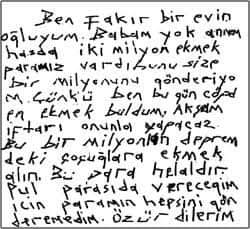 Ben Fakir bir evin
oğluyum. Babam yok annem
hasda iki milyon ekmek
paramız vardı bunu size
bir milyonunu gönderiyo
m. Çünkü ben bu gün çöpd
en Ekmek buldum, Akşam
iftarı onunla yapacaz.
Bu bir milyonlan deprem
deki çocuğlara ekmek
alın. Bu para helaldır.
pul parasıda vereceğim
için paramın hepsini gön
deremedim. özür dilerim